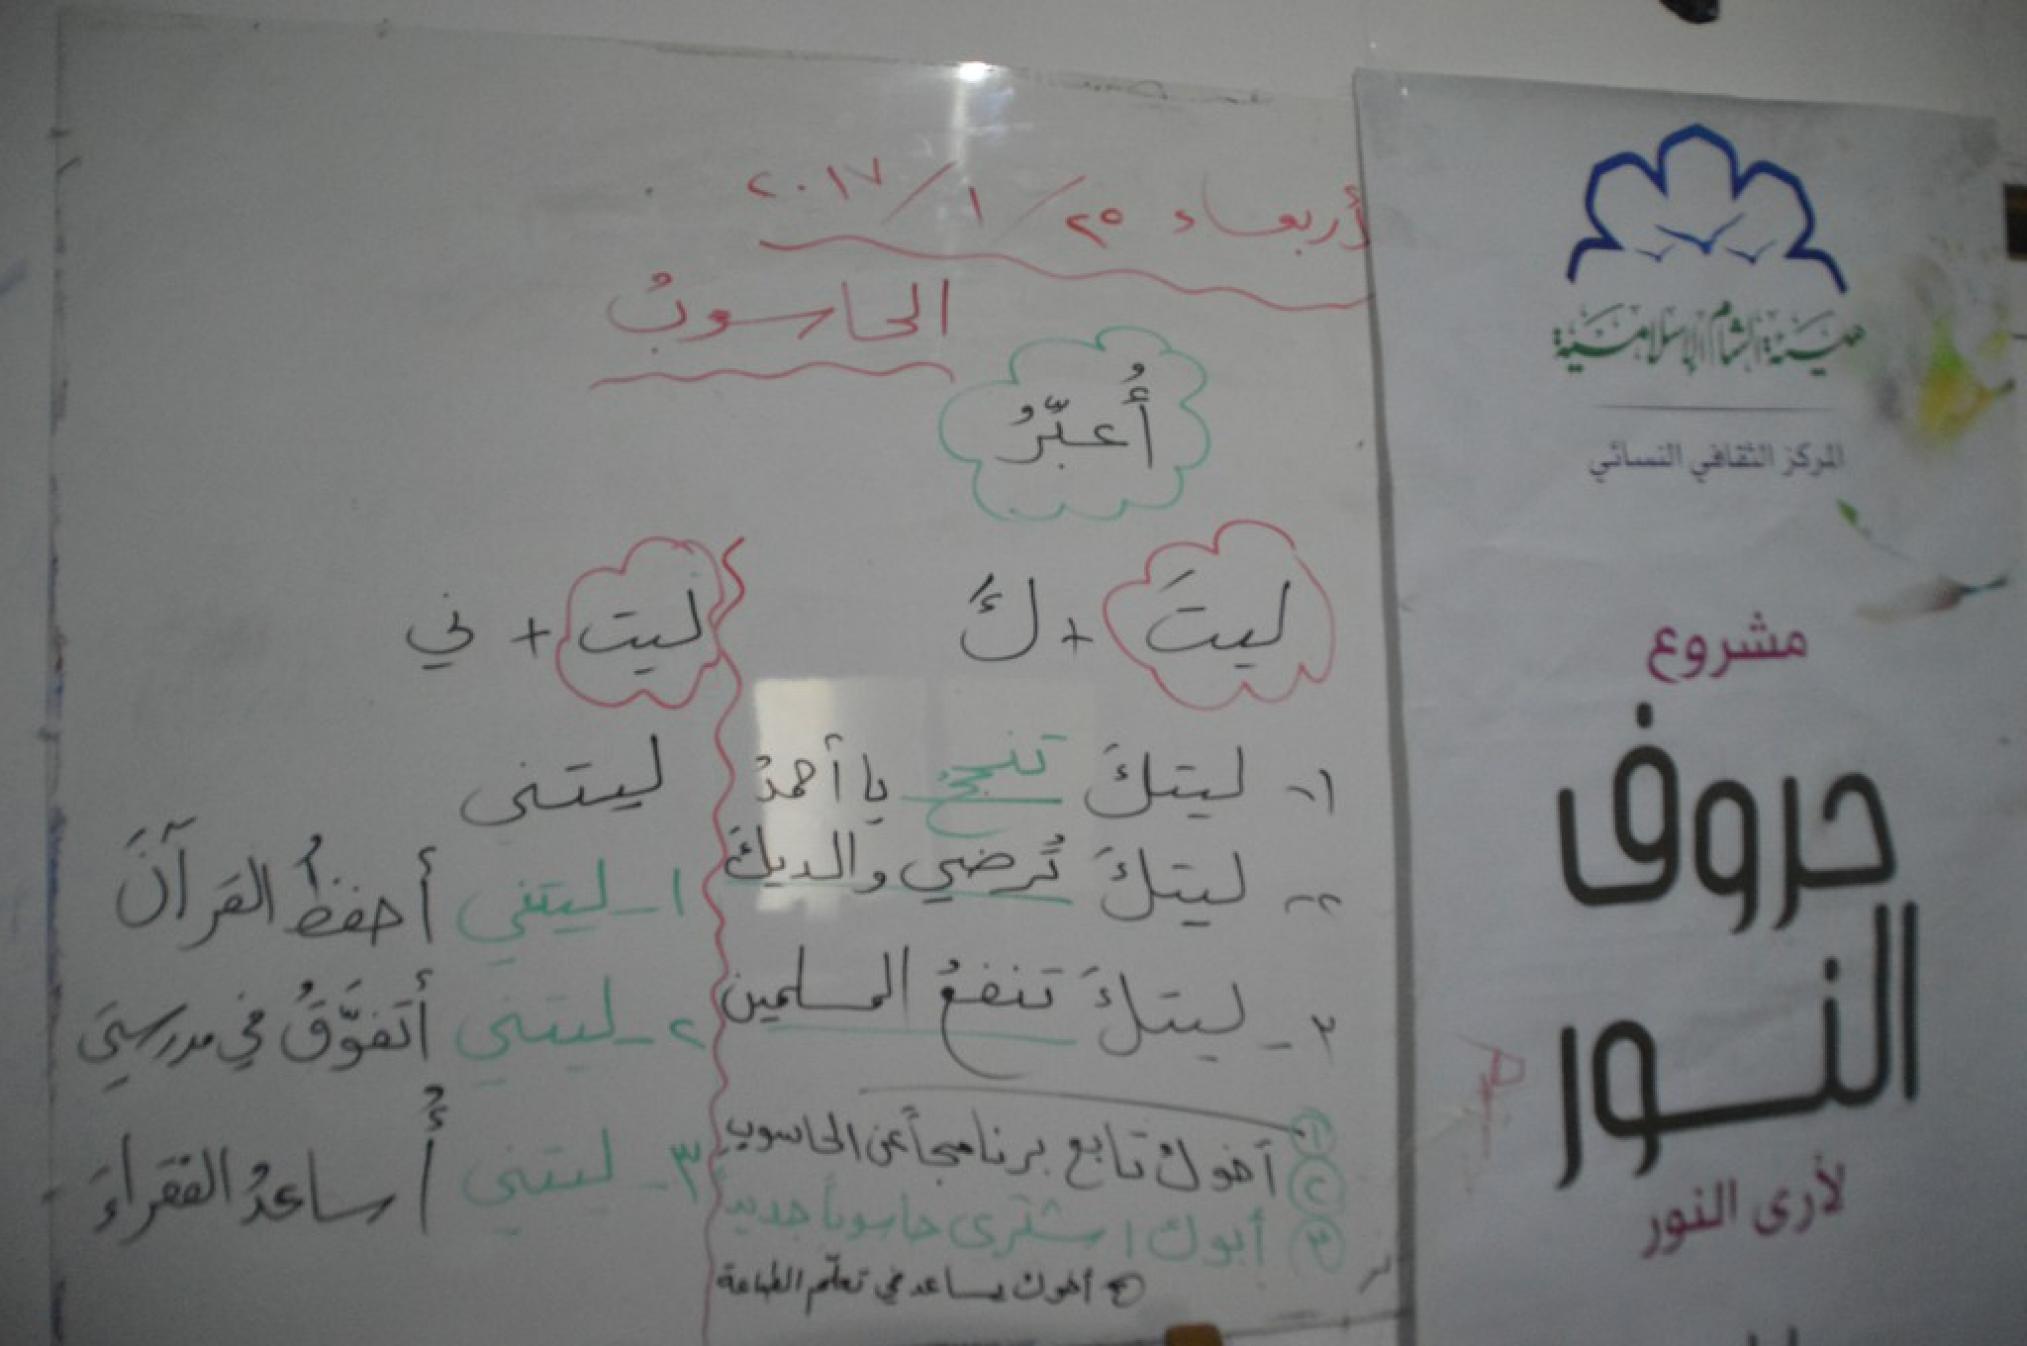 أربعاء ٢٥/١/٢٠١٧
الحاسوبُ
أُعبّرُ
ليتَ + كَ
١- ليتكَ تنجحُ يا أحمدُ
٢- ليتكَ تُرضي والديكَ
٣- ليتكَ تنفعُ المسلمين
① أخوك تابع برنامجاً عن الحاسوب
② 
③ أبوك اشترى حاسوباً جديد
أخوك يساعد في تعلّم الطباعة
ليت + ني
ليتني
١- ليتني أحفظُ القرآنَ
٢- ليتني أتفوَّقُ في مدرستي
٣- ليتني أُساعدُ الفقراءَ
هيئة الشام الإسلامية
المركز الثقافي النسائي
مشروع
حروف
النور
لأرى النور